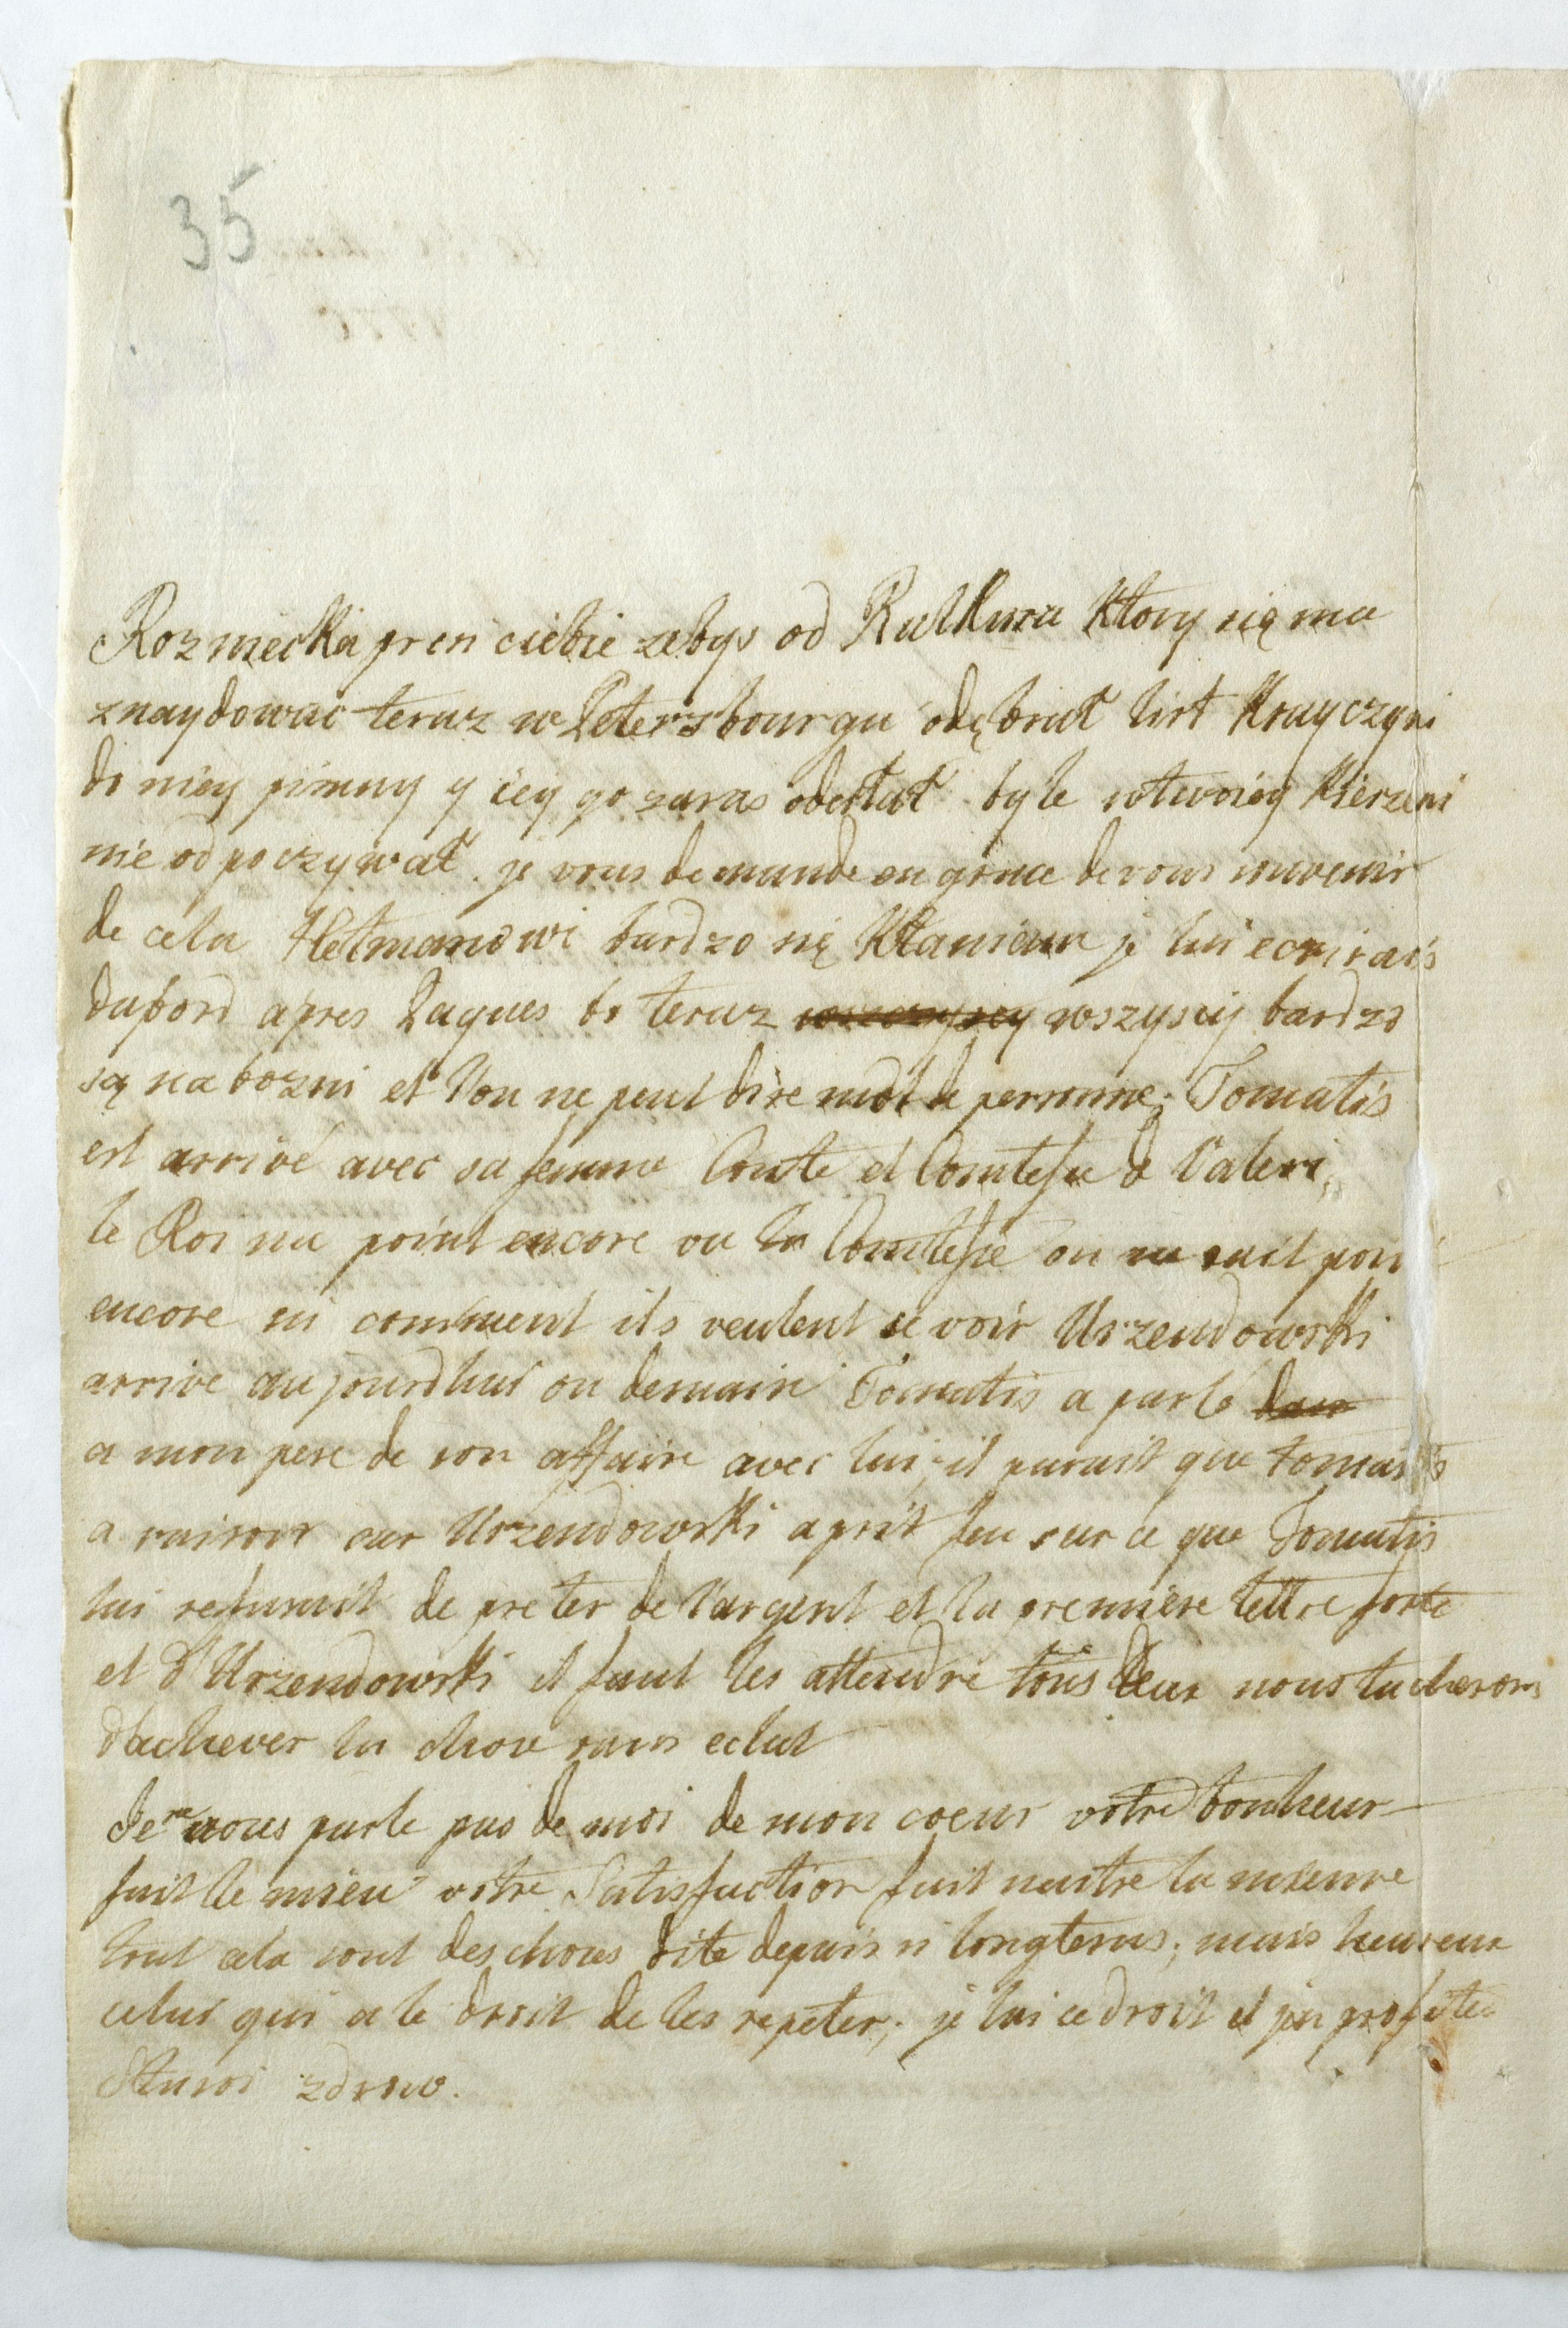 35
Rozmecka prosi ciebie zebys od Rulkura Ktory się ma
znaydowac teraz w Petersbourgu odębrał list Krayczyni
do niey pisany y iey go zaras odesłał byle w twoiey Kieszeni
nie odpoczywał. je vous demande en grace de vous souvenir
de cela Hetmanowi bardzo się Kłaniam je lui ecrirais
dabord apres Paques bo teraz wszyscy bardzo
są nabozni et l'on ne peut dire mot de personne; Tomatis
est arrivé avec sa femme Comte et Comtesse de Valeri,
le Roi na point encore vu la Comtesse on ne sait poin
encore ni comment ils veulent se voir Urzendowski
arrive aujourdhui ou demain Tomatis a parlé
a mon pere de son affaire avec lui; il parait que tomatis
a raison car Urzendowski a prit feu sur ce que Tomatis
lui refusait de preter de l'argent et la premiere lettre forte
et d'Urzendowski il faut les attendre tous deux nous tacherons
d'achever la chose sans eclat
Je ne vous parle pas de moi de mon coeur votre bonheur
fait le mien votre Satisfaction fait naitre la mienne
tout cela sont des choses dite depuis si longtems; mais heureux
celui qui a le droit de les repeter; je lai ce droit et j'en profite
bywai zdrow.